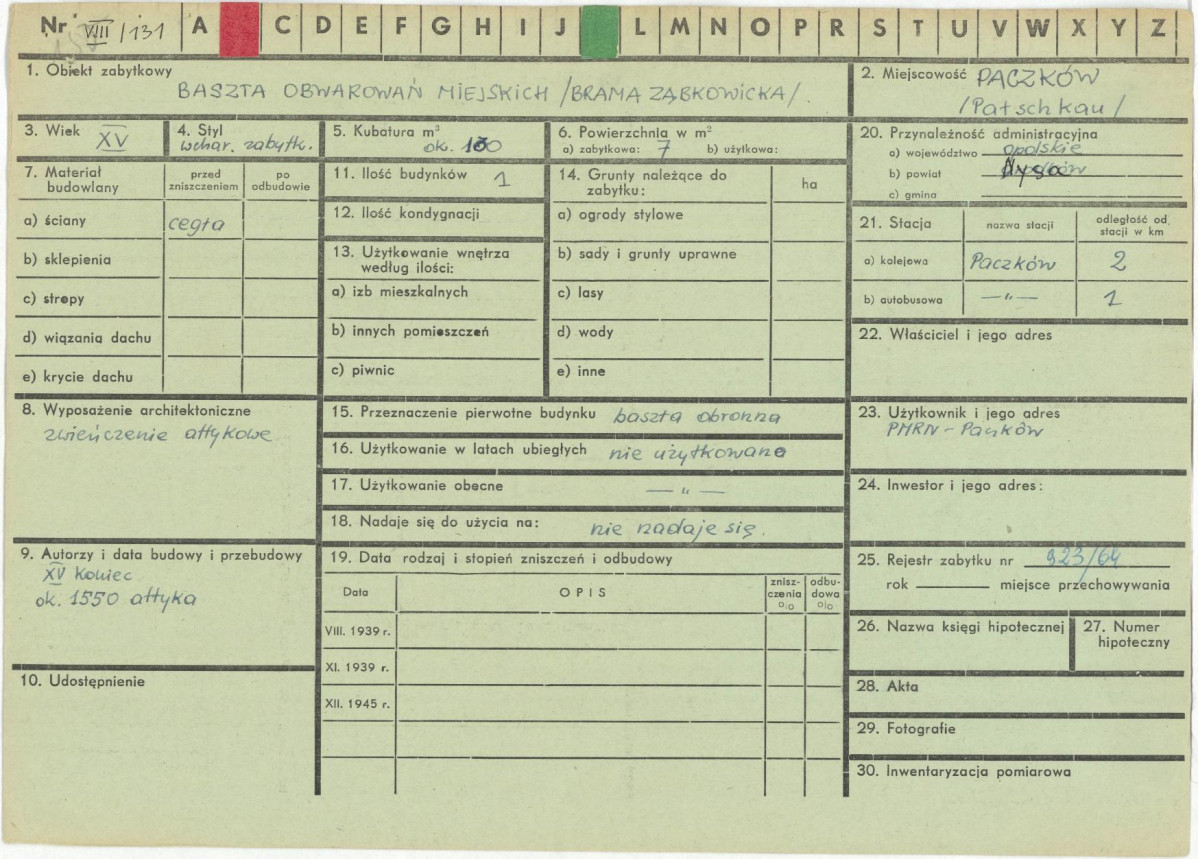 Nr VIII/131 A C D E F G H I J L M N O P R S T U V W X Y Z
1. Obiekt zabytkowy
BASZTA OBWAROWAŃ MIEJSKICH /BRAMA ZĄBKOWICKA/
2. Miejscowość PACZKÓW
/Patschkau/
3. Wiek XV
4. Styl
wchar. zabytk.
5. Kubatura m³
ok.
6. Powierzchnia w m²
a) zabytkowa: 7 b) użytkowa:
7. Materiał budowlany
przed zniszczeniem
po odbudowie
a) ściany cegła
b) sklepienia
c) stropy
d) wiązania dachu
e) krycie dachu
11. Ilość budynków 1
12. Ilość kondygnacji
13. Użytkowanie wnętrza
według ilości:
a) izb mieszkalnych
b) innych pomieszczeń
c) piwnic
14. Grunty należące do
zabytku:
ha
a) ogrody stylowe
b) sady i grunty uprawne
c) lasy
d) wody
e) inne
20. Przynależność administracyjna
a) województwo opolskie
b) powiat Nysa
c) gmina
21. Stacja
nazwa stacji
odległość od
stacji w km
a) kolejowa Paczków 2
b) autobusowa —„— 1
22. Właściciel i jego adres
8. Wyposażenie architektoniczne
zwieńczenie attykowe
15. Przeznaczenie pierwotne budynku baszta obronna
16. Użytkowanie w latach ubiegłych nie użytkowano
17. Użytkowanie obecne —„—
18. Nadaje się do użycia na: nie nadaje się.
23. Użytkownik i jego adres
PMRN - Paczków
24. Inwestor i jego adres:
9. Autorzy i data budowy i przebudowy
XV koniec
ok. 1550 attyka
10. Udostępnienie
19. Data rodzaj i stopień zniszczeń i odbudowy
Data
OPIS
znisz-
czenia
o/o
odbu-
dowa
o/o
VIII. 1939 r.
XI. 1939 r.
XII. 1945 r.
25. Rejestr zabytku nr 923/64
rok miejsce przechowywania
26. Nazwa księgi hipotecznej
27. Numer
hipoteczny
28. Akta
29. Fotografie
30. Inwentaryzacja pomiarowa